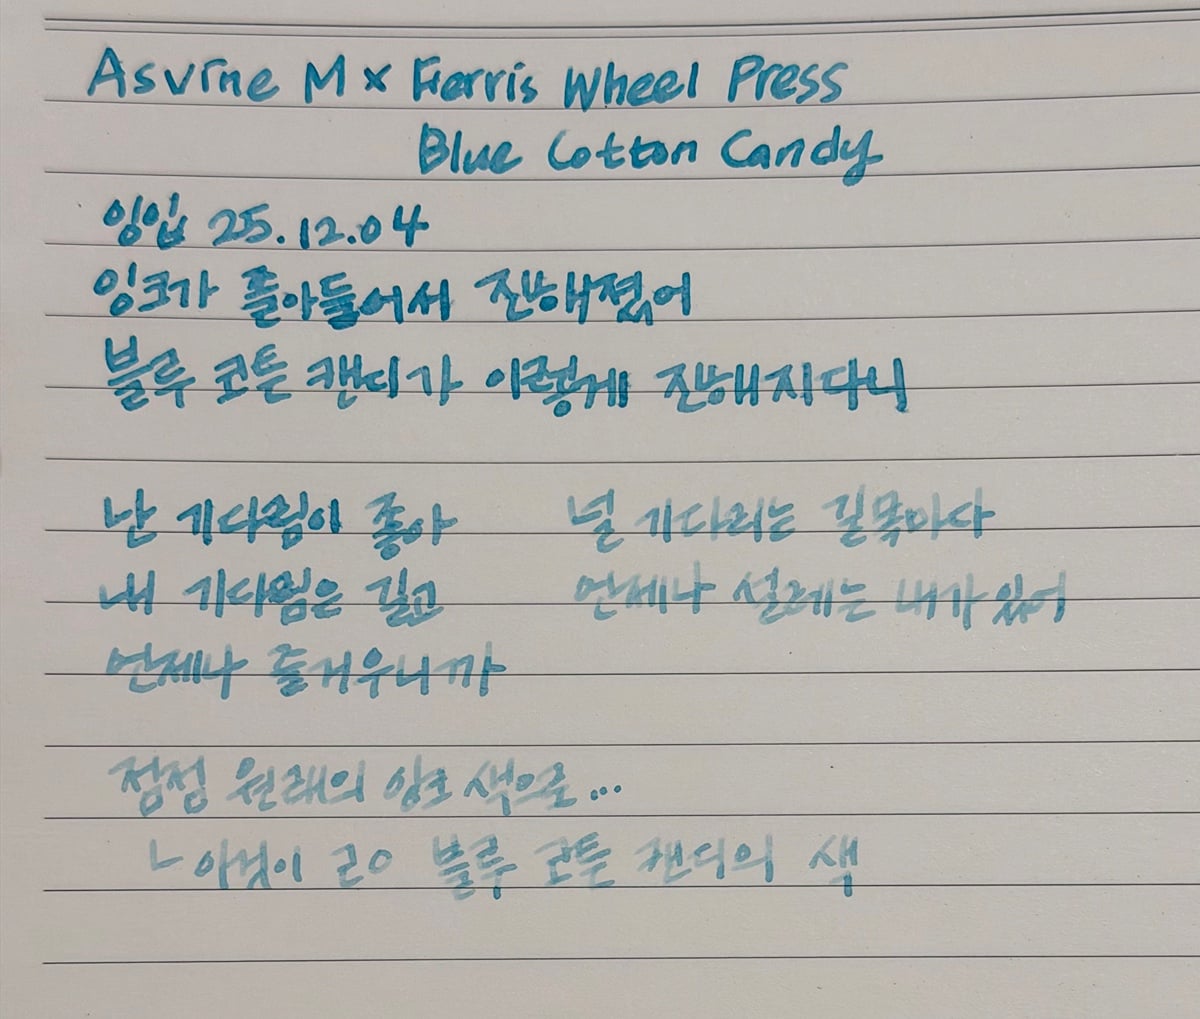 Asvine M x Ferris Wheel Press
Blue Cotton Candy
잉입 25.12.04
잉크가 졸아들어서 진해졌어
블루 코튼 캔디가 이렇게 진해지다니
난 기다림이 좋아
내 기다림은 길고
언제나 즐거우니까
널 기다리는 길목마다
언제나 설레는 내가 있어
점점 원래의 잉크 색으로...
ㄴ 이것이 ro 블루 코튼 캔디의 색